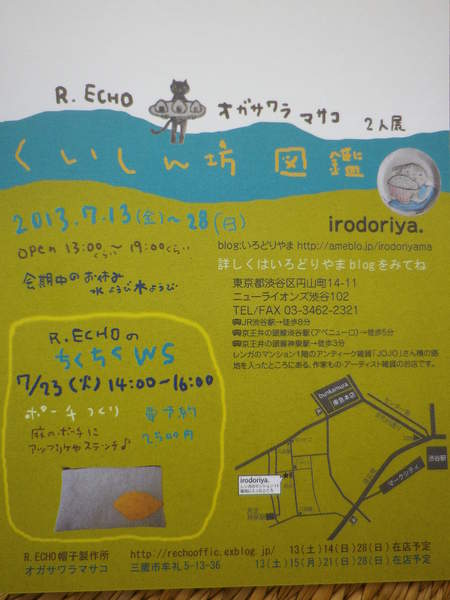 R. ECHO オガサワラ マサコ 2人展
くいしん坊 図鑑
2013.7.13(金)～28(日)
OPEN 13:00くらい～19:00くらい
会期中のお休み
irodoriya.
blog:いろどりやま http://ameblo.jp/irodoriyama
詳しくはいろどりやまblogをみてね
東京都渋谷区円山町14-11
ニューライオンズ渋谷102
TEL/FAX 03-3462-2321
JR渋谷駅→徒歩8分
京王井の頭線渋谷駅(アベニュー口)→徒歩5分
京王井の頭線神泉駅→徒歩3分
レンガのマンション1階のアンティーク雑貨「JOJO」さん横の路
地を入ったところにある、作家もの・アーティスト雑貨のお店です。
R.ECHOの
ちくちくWS
7/23(火) 14:00-16:00
ポーチつくり 要予約
麻のポーチに 2,500円
アップリケやステッチ♪
Bunkamura
東急本店
渋谷駅
マークシティ
irodoriya.
R.ECHO帽子製作所 http://rechooffic.exblog.jp/ 13(土)14(日)28(日)在店予定
オガサワラマサコ 三鷹市牟礼5-13-36 13(土)15(月)21(日)28(日)在店予定